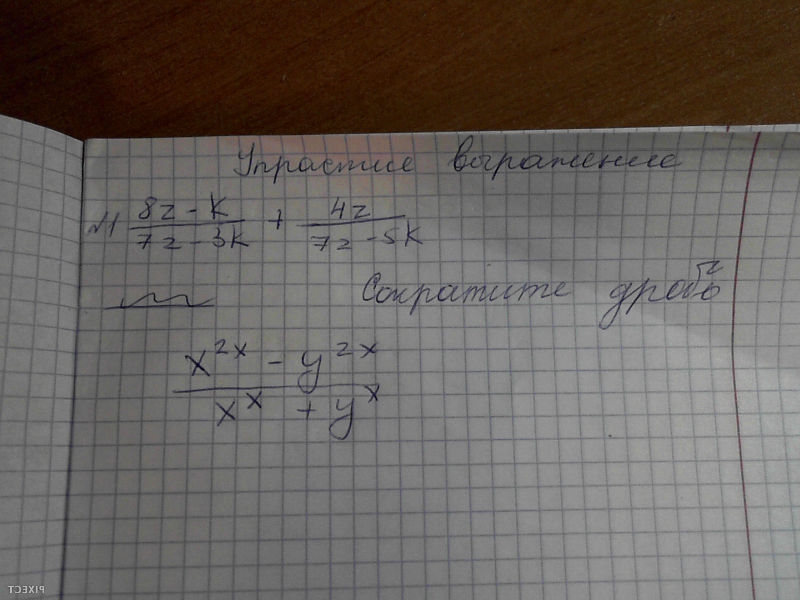 Упрастие выражение
№1 (8z - k)/(7z - 3k) + 4z/(7z - 5k)
Сократите дробь
(x^{2x} - y^{2x})/(x^x + y^x)
PIXECT